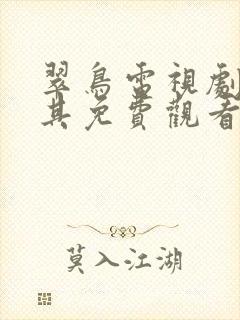 翠鳥電視劇
其免費觀看
莫入江湖